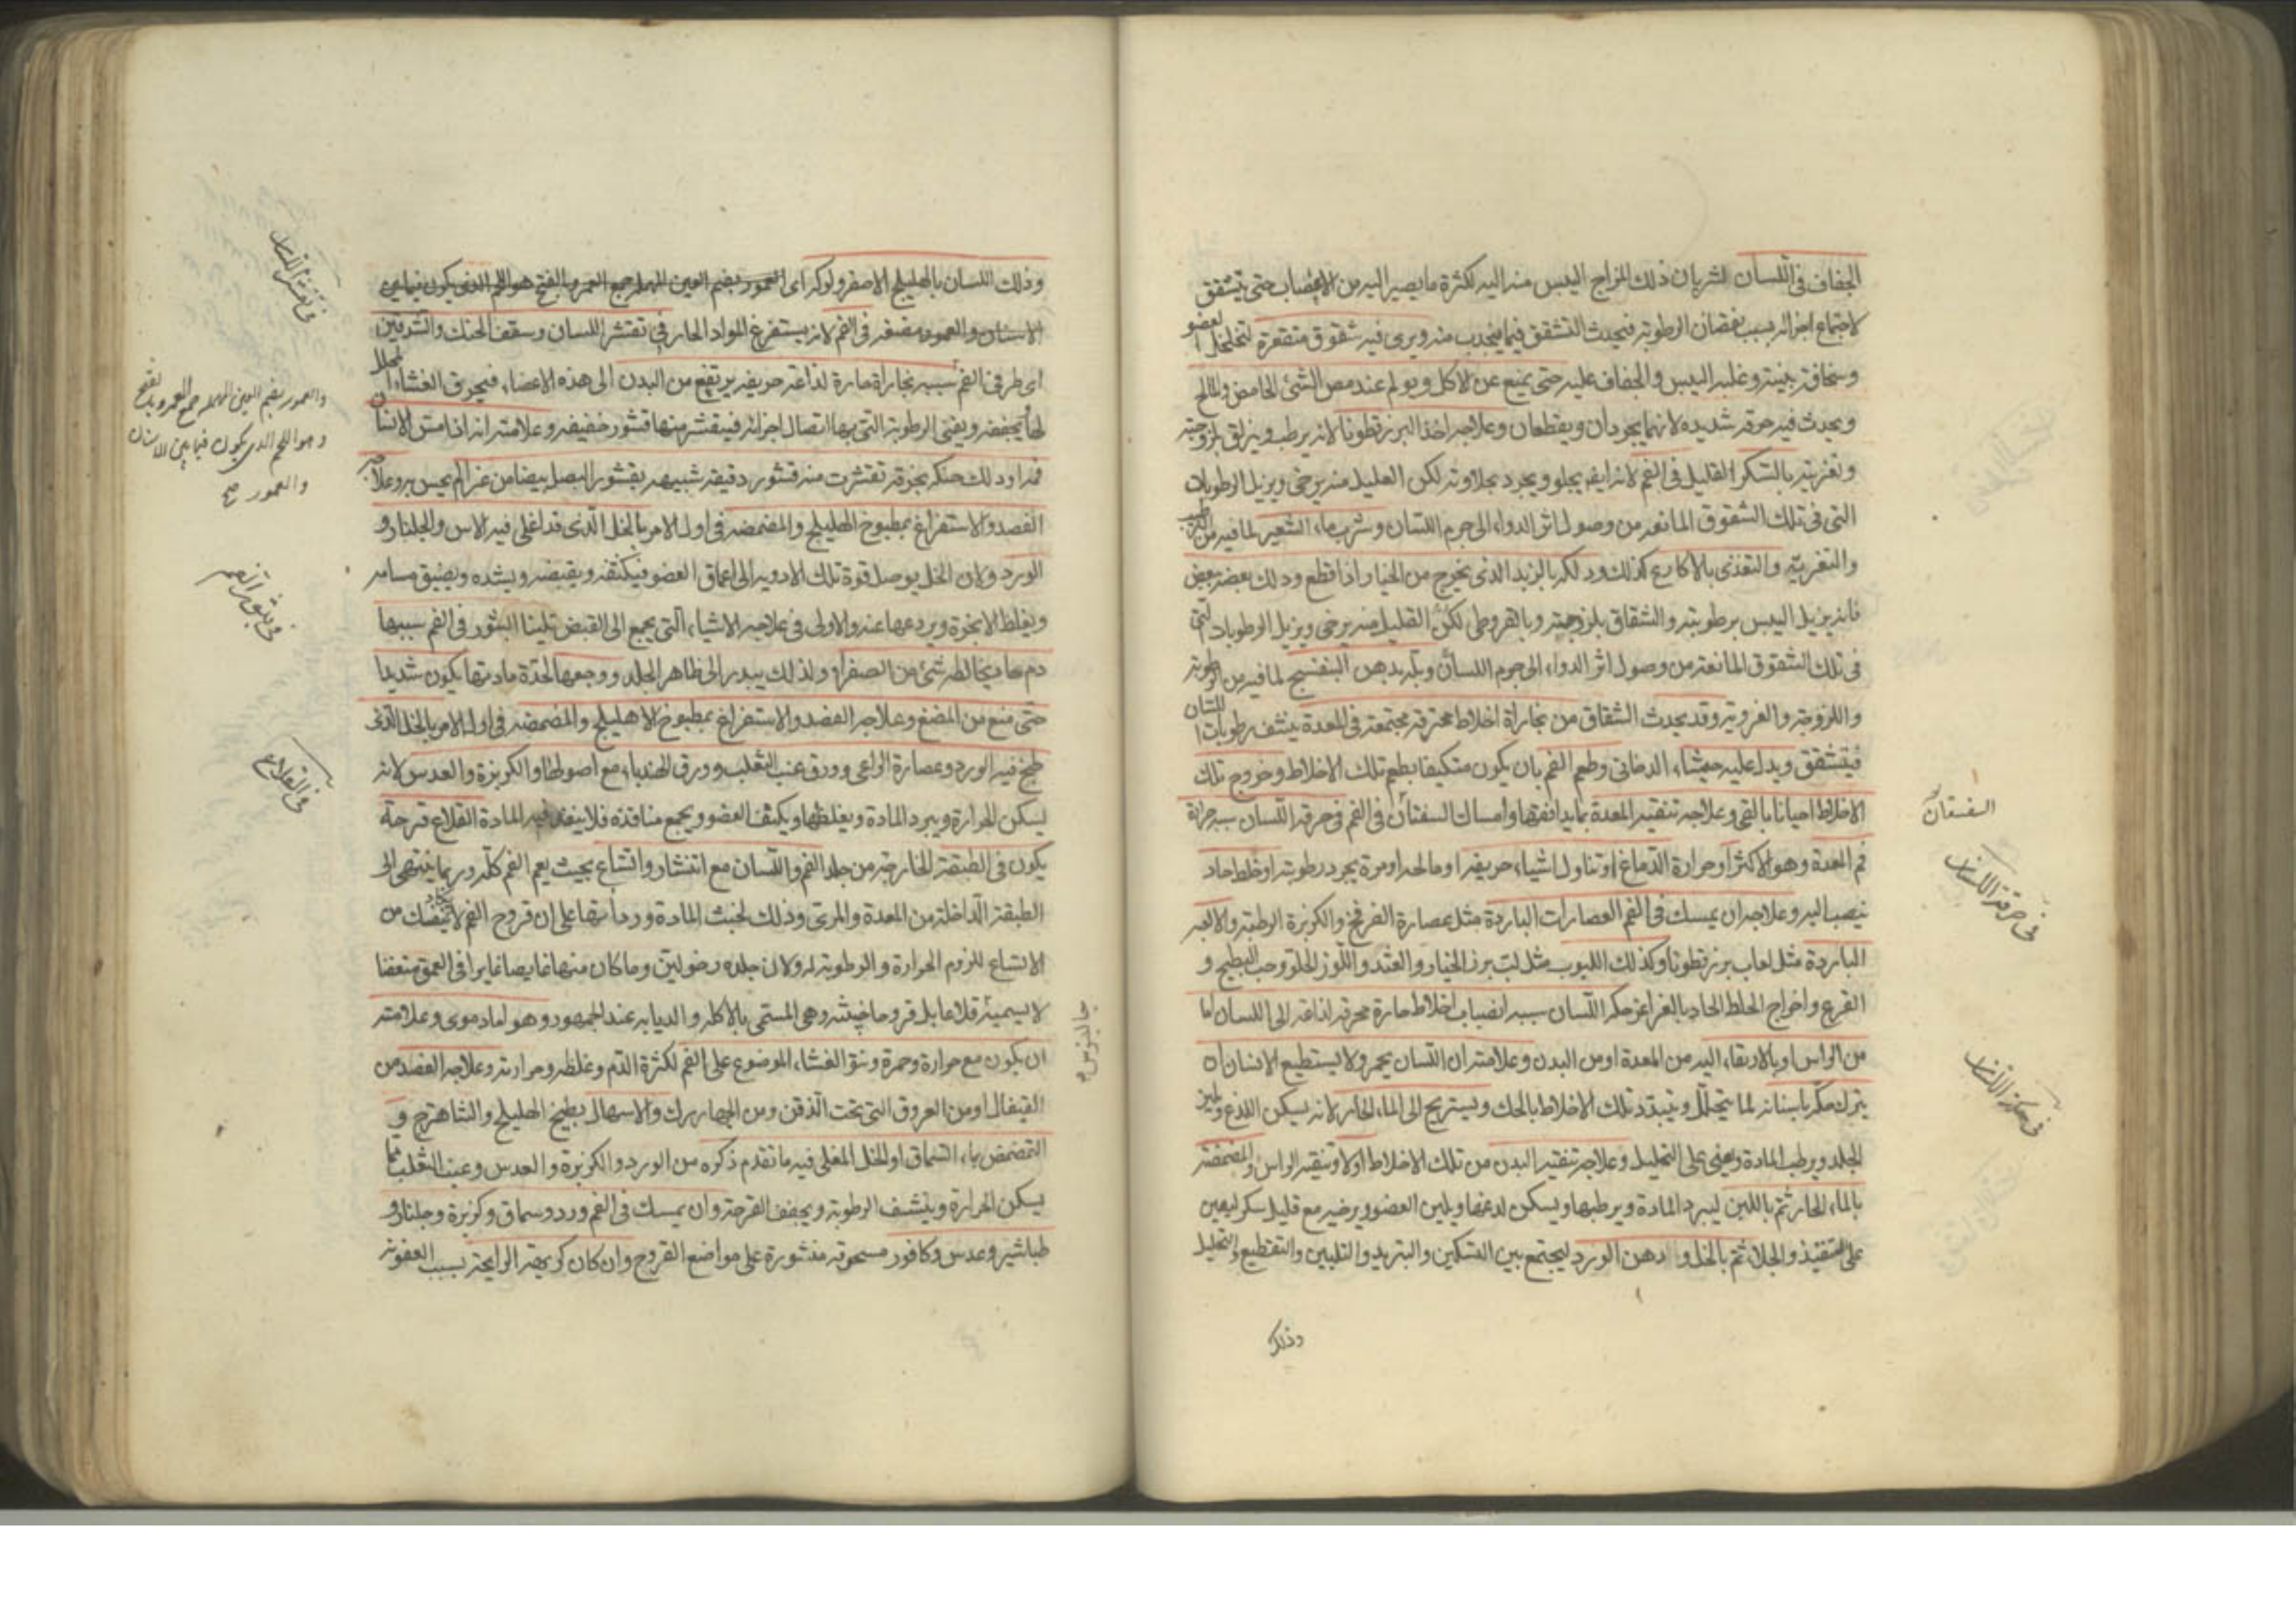 الجفاف في اللسان لشربان ذلك المزاج اليبس منه اليه لكثرة ما يصير اليه من الاعصاب حتى يتشقق
لاجتماع اجزائه بسبب نقصان الرطوبة فيحدث التشقق فيما ينجذب منه ويرى فيه شقوق متقعرة لتخلخل العضو
وسخافة وغلبة اليبس والجفاف عليه حتى يمنع عن الاكل ويولم عند مص الشئ الحامض والمالح
ويحدث فيه حرقة شديدة لانهما يجردان ويقطعان وعلاجه اخذ البزرقطونا لانه يرطب ويزلق بلزوجته
وتغريته بالسكر القليل في الفم لانه ايضا يجلو ويجرد بحلاوته لكن القليل منه يرخى ويزيل الرطوبات
التي في تلك الشقوق المانعة من وصول اثر الدواء الى جرم اللسان وشرب ماء الشعير لما فيه من الترطيب
والتغرية والتغذى بالاكارع كذلك ودلكه بالزبد الذي يخرج من الخيار اذا قطع ودلك بعضه ببعض
فانه يزيل اليبس برطوبته والشقاق بلزوجته وبالقروطى لكن القليل منه يرخى ويزيل الرطوبات التي
في تلك الشقوق المانعة من وصول اثر الدواء الى جرم اللسان وبدهن البنفسج لما فيه من الرطوبة
واللزوجة والغروية وقد يحدث الشقاق من بخارات اخلاط محترقة مجتمعة في المعدة ينشف رطوبات اللسان
فيتشقق ويدل عليه جشاء الدخاني وطعم الفم بان يكون متكيفا بطعم تلك الاخلاط وخروج تلك
الاخلاط احيانا بالقى وعلاجه تنقية المعدة بما يدافعها وامساك السفستان في الفم في حرقة اللسان سببه حرارة
السفستان
في حرقة اللسان
فم المعدة وهو الاكثر او حرارة الدماغ او تناول اشياء حريفة او مالحة او مرة يجرد رطوبته او خلط حاد
ينصب اليه وعلاجه ان يمسك في الفم العصارات الباردة مثل عصارة الفرفخ والكزبرة الرطبة والالعبة
الباردة مثل لعاب بزرقطونا وكذلك اللبوب مثل لب بزر الخيار والقثد واللوز الحلو وحب البطيخ و
القرع واخراج الخلط الحاد بالغراغر حكة اللسان سببه انصباب اخلاط حارة محرقة لذاعة الى اللسان اما
من الراس او بالارتقاء اليه من المعدة او من البدن وعلامته ان اللسان يحمر ولا يستطيع الانسان ان
في حكة اللسان
يترك حكه باسنانه لما يتحلل ويتبدد تلك الاخلاط بالحك ويستريح الى الماء الحار لانه يسكن اللذع ويلين
الجلد ويرطب المادة ويعين على التحليل وعلاجه تنقية البدن من تلك الاخلاط اولا وتنقية الراس والمضمضة
بالماء الحار ثم باللبن ليبرد المادة ويرطبها ويسكن لذعها ويلين العضو ويرخيه مع قليل سكر ليعين
على التنفيذ والجلاء ثم بالخل و دهن الورد ليجتمع بين التسكين والتبريد والتليين والتقطيع والتحليل
وذلك
وذلك اللسان بالهليلج الاصفر ولوكه اى العمور بضم العين المهملة جمع العمر بالفتح هو اللحم الذي يكون فيما بين
في تقشر اللسان
الاسنان والعمور مضغه في الفم لانه يستفرغ المواد الحارة في تقشر اللسان وسقف الحنك والشدقين
اى طرفى الفم سببه بخارات حارة لذاعة حريفة يرتفع من البدن الى هذه الاعضاء فيحرق الغشاء المجلل
لها ويجففه ويفنى الرطوبة التي بها اتصال اجزائه فينقشر منها قشور خفيفة وعلامته انه اذا مس الانسان
والعمور بضم العين المهملة جمع العمر بالفتح
وهو اللحم الذي يكون فيما بين الاسنان
والعمور صح
فمه او دلك حنكه بخرقة تقشرت منه قشور دقيقة شبيهة بقشور البصل بيضا من غير الم يحس به وعلاجه
الفصد والاستفراغ بمطبوخ الهليلج والمضمضة في اول الامر بالخل الذي قد اغلى فيه الاس والجلنار و
الورد ولان الخل يوصل قوة تلك الادوية الى اعماق العضو فيكثفه ويقبضه ويشده ويضيق مسامه
في بثور الفم
ويغلظ الابخرة ويردعها عنه والاولى في علاجه الاشياء التي يجمع الى القبض تليينا البثور في الفم سببها
دم حاد يخالطه شئ من الصفراء ولذلك يبدر الى ظاهر الجلد ووجعها لحدة مادتها يكون شديدا
حتى منع من المضغ وعلاجه الفصد والاستفراغ بمطبوخ الاهليلج والمضمضة في اول الامر بالخل الذي
في القلاع
طبخ فيه الورد وعصارة الراعى وورق عنب الثعلب وورق الهندباء مع اصولها والكزبرة والعدس لانه
يسكن الحرارة ويبرد المادة ويغلظها ويكثف العضو ويجمع منافذه فلا ينفذ فيه المادة القلاع قرحة
يكون في الطبقة الخارجة من جلد الفم واللسان مع انتشار واتساع بحيث يعم الفم كله وربما ينتهى الى
الطبقة الداخلة من المعدة والمرى وذلك لخبث المادة وردأتها على ان قروح الفم لا يكاد ينفك من
الاتساع للزوم الحرارة والرطوبة له ولان جلده رخو لين وما كان منها غايصا غايرا في العمق متعفنا
لا يسميه قلاعا بل قروحا خبيثة وهي المسمى بالاكلة والذبابة عند الجمهور وهو اما دموى وعلامته
جالينوس
ان يكون مع حرارة وحمرة ونتو الغشاء الموضوع على الفم لكثرة الدم وغلظه وحرارته وعلاجه الفصد من
القيفال او من العروق التي تحت الذقن ومن الجهاررك والاسهال بطبيخ الهليلج والشاهترج و
التمضمض بماء السماق او الخل المغلى فيه ما تقدم ذكره من الورد والكزبرة والعدس وعنب الثعلب مما
يسكن الحرارة وينشف الرطوبة ويجفف القرحة وان يمسك في الفم ورد وسماق وكزبرة وجلنار و
طباشير وعدس وكافور مسحوقة منثورة على مواضع القروح وان كان كريهة الرايحة بسبب العفونة